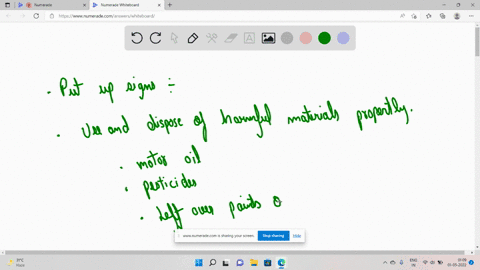 Numerade
Numerade Whiteboard
https://www.numerade.com/answers/whiteboard/
. Put up signs :-
. Use and dispose of harmful materials propertly.
. motor oil
. pesticides
. Left over paints o
www.numerade.com is sharing your screen. Stop sharing Hide
31°C
Haze
ENG
IN